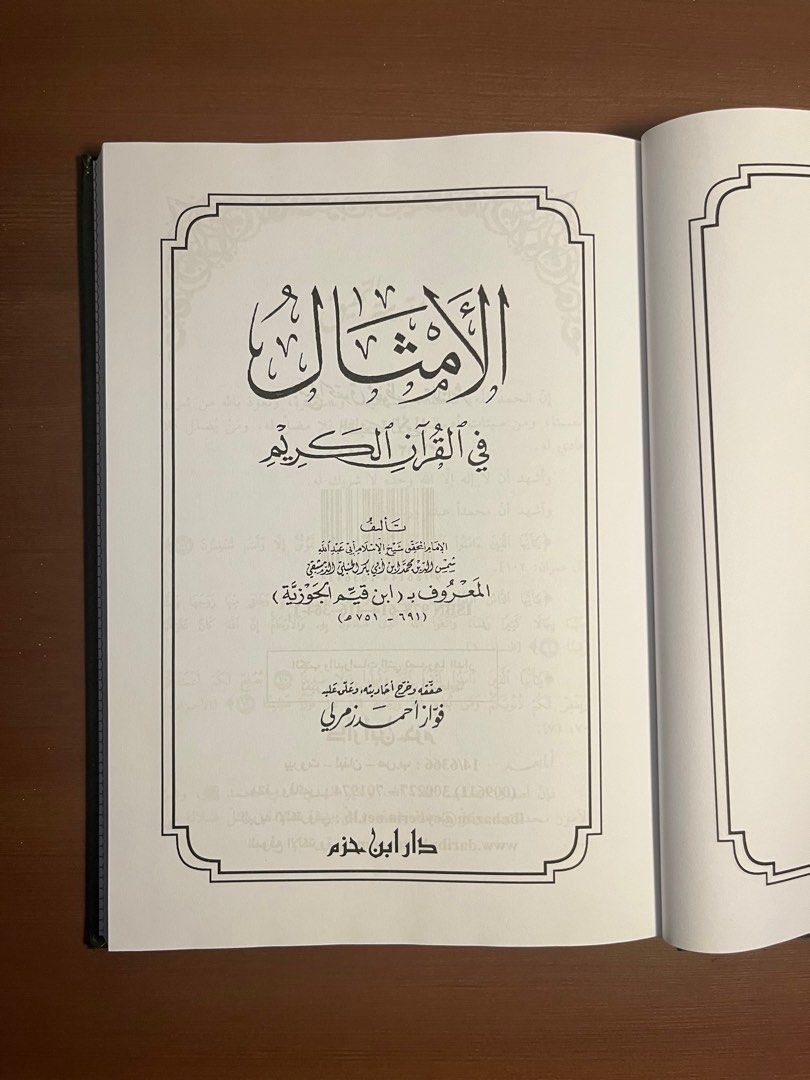 الأَمْثَالُ
في القُرآنِ الكَرِيْمِ
تَأليفُ
الإمام المحقق شيخ الإسلام أبي عبد الله
شمس الدين محمد ابن أبي بكر الحنبلي الدمشقي
المَعْرُوف بـ (ابن قيّم الجوْزِيَّة)
(٦٩١ - ٧٥١ هـ)
حقّقه وخرّج أحاديثه، وعَلّق عليه
فوّاز أحمد زمرلي
دار ابن حزم